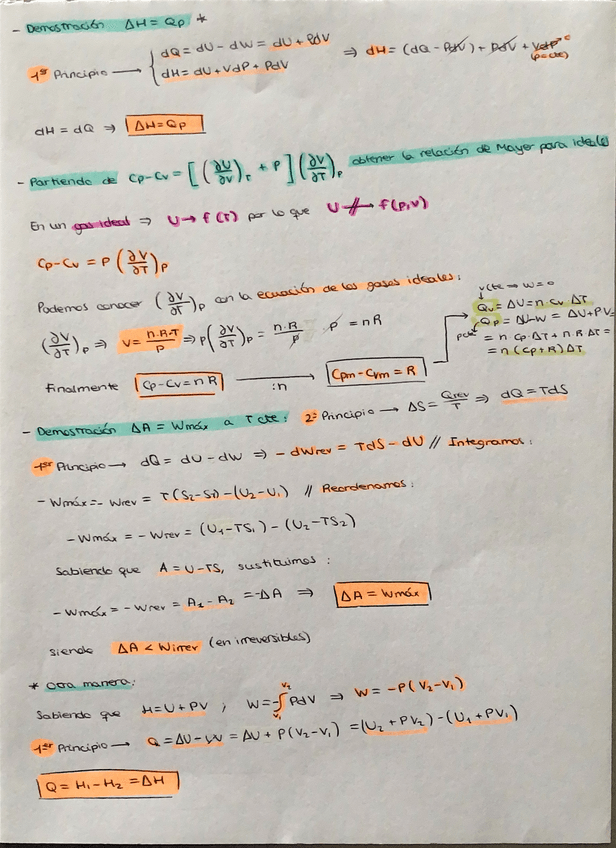 - Demostración ΔH = Qp *
1er Principio → { dQ = dU - dW = dU + PdV
dH = dU + VdP + PdV ⇒ dH = (dQ - PdV) + PdV + VdP⁰ (p cte)
dH = dQ ⇒ ΔH = Qp
- Partiendo de Cp-Cv = [(∂U/∂V)T + P](∂V/∂T)P obtener la relación de Mayer para ideales
En un gas ideal ⇒ U → f(T) por lo que U ↛ f(P,V)
Cp-Cv = P(∂V/∂T)P
Podemos conocer (∂V/∂T)P con la ecuación de los gases ideales:
(∂V/∂T)P ⇒ V = n·R·T/P ⇒ P(∂V/∂T)P = n·R/P P = nR
Finalmente Cp-Cv = nR :n → Cpm - Cvm = R
V cte ⇒ W = 0
Qv = ΔU = n·Cv ΔT
Qp = ΔU-W = ΔU + PV =
p cte = n Cp·ΔT + n·R ΔT =
= n(Cp+R)ΔT
- Demostración ΔA = Wmáx a T cte: 2º Principio → ΔS = Qrev/T ⇒ dQ = TdS
1er Principio → dQ = dU - dW ⇒ - dWrev = TdS - dU // Integramos:
- Wmáx = - Wrev = T(S2-S1) - (U2-U1) // Reordenamos:
- Wmáx = - Wrev = (U1-TS1) - (U2-TS2)
Sabiendo que A = U-TS, sustituimos:
- Wmáx = - Wrev = A1 - A2 = -ΔA ⇒ ΔA = Wmáx
siendo ΔA < Wirrev (en irreversibles)
* Otra manera:
Sabiendo que H = U + PV ; W = -∫V1V2 PdV ⇒ W = -P(V2-V1)
1er Principio → Q = ΔU - W = ΔU + P(V2-V1) = (U2 + PV2) - (U1 + PV1)
Q = H1 - H2 = ΔH